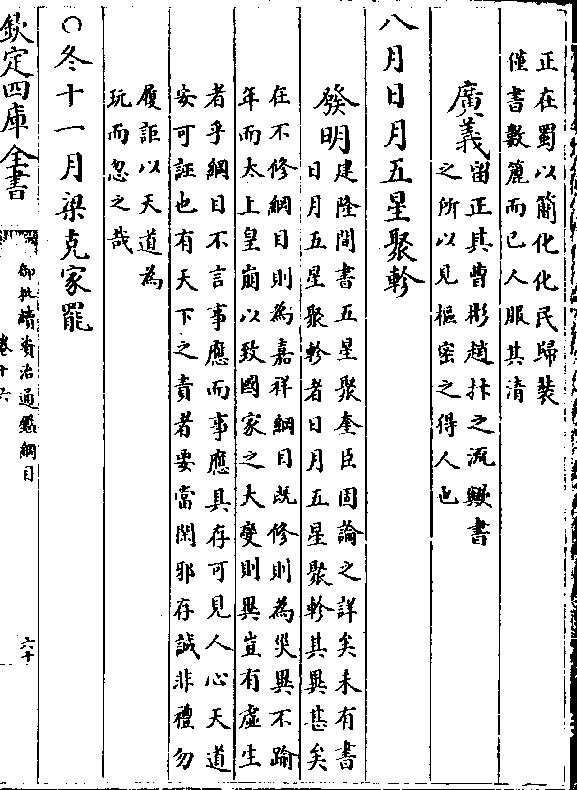 正在蜀以簡化化民歸裝
僅書數簏而已人服其清
廣義留正其曹彬趙抃之流歟書
之所以見樞密之得人也
八月日月五星聚軫
發明建隆間書五星聚奎臣固論之詳矣未有書
日月五星聚軫者日月五星聚軫其異甚矣
在不修綱目則為嘉祥綱目既修則為災異不踰
年而太上皇崩以致國家之大變則異豈有虛生
者乎綱目不言事應而事應具存可見人心天道
安可誣也有天下之責者要當閑邪存誠非禮勿
履詎以天道為
玩而忽之哉
○冬十一月梁克家罷
欽定四庫全書
御批續資治通鑑綱目
卷十六
六十